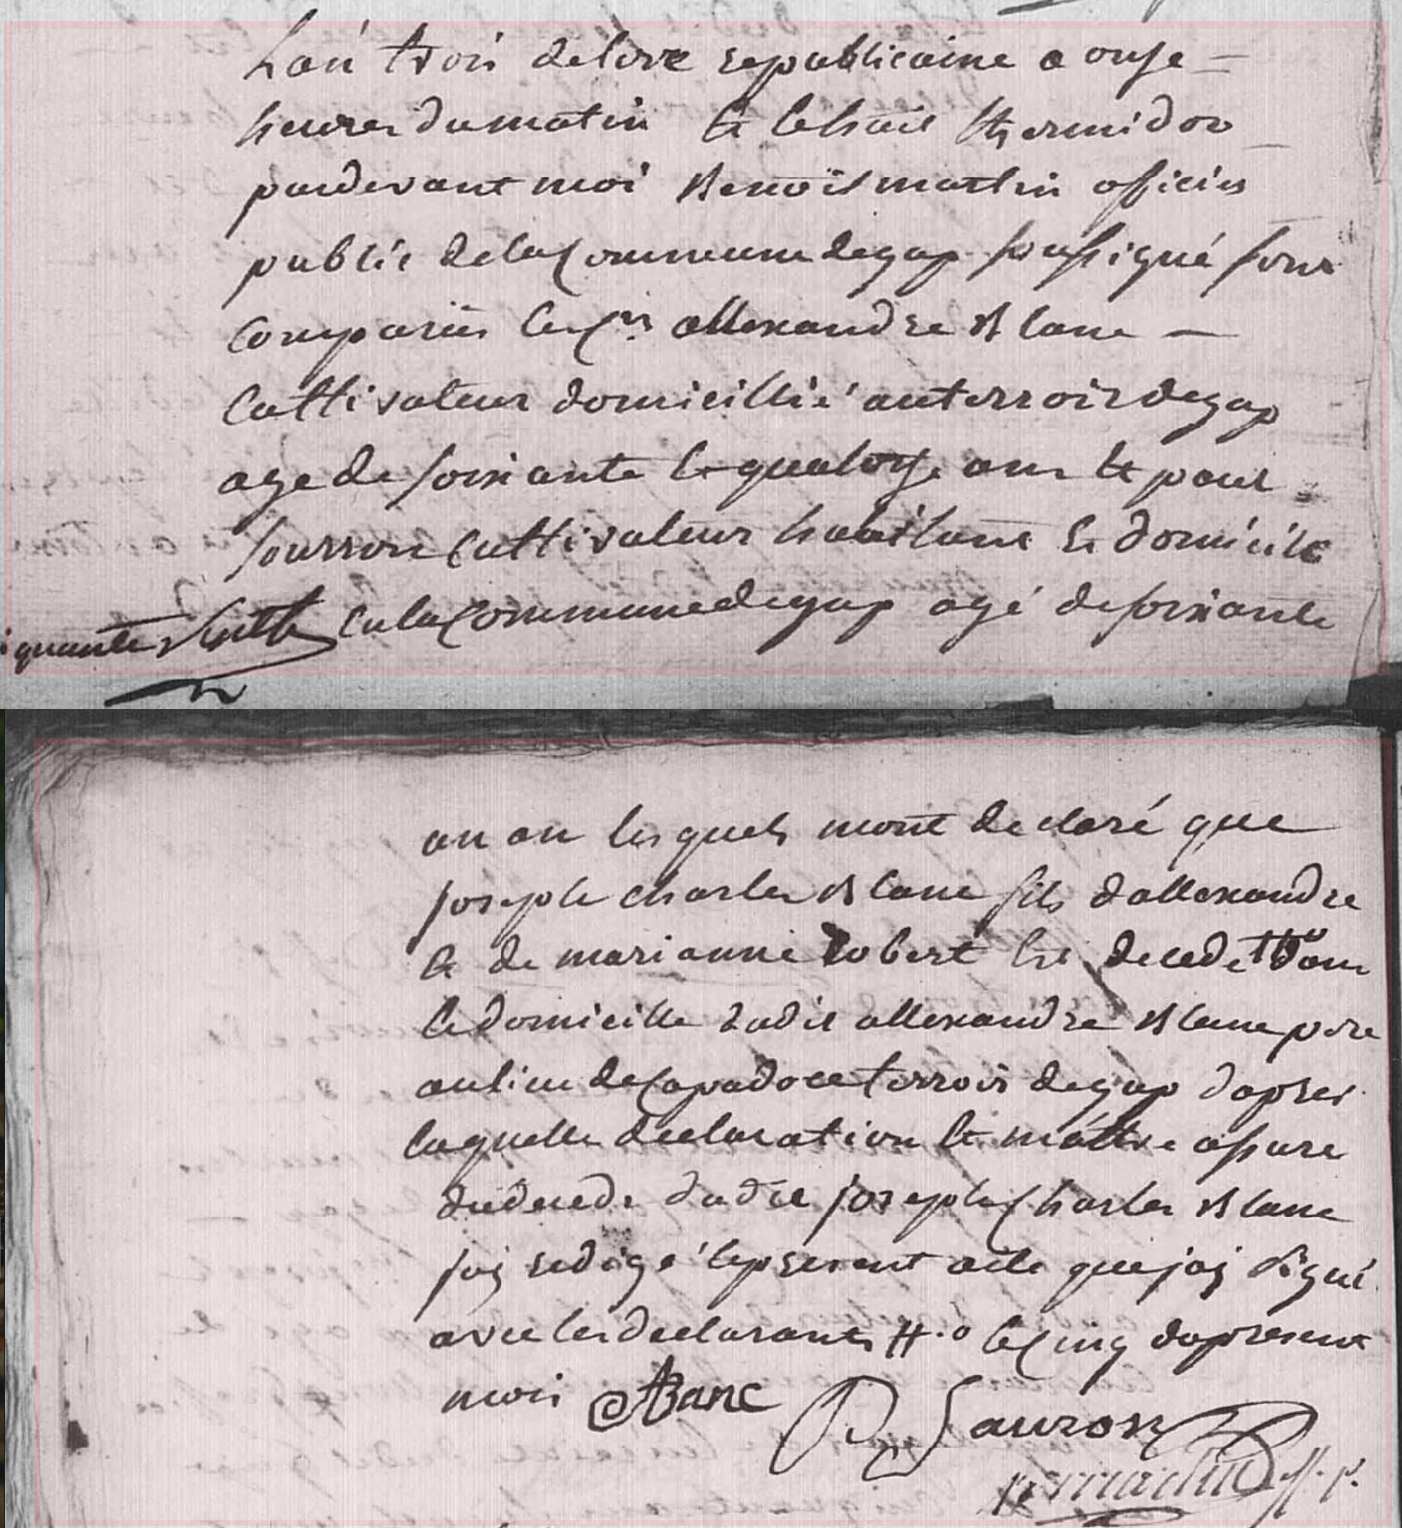 Lan trois de lere republicaine a onze
heures du matin et le huit thermidor
pardevant moi Benoit martin officier
public de la Commune de gap soussigné sont
comparus les Cns allexandre Blanc
Cultivateur domicillié au terroir de gap
age de soixante et quatorze ans et paul
sourron cultivateur habitant et domicile
en la Commune de gap agé de soixante
quante
un an lesquels mont declaré que
joseph charles Blanc fils dallexandre
et de marianne Robert est decedé dans
le domicille dudit allexandre Blanc pere
au lieu de Capadoce terroir de gap dapres
laquelle declaration et mettre assure
du deces dudit joseph Charles Blanc
jai redigé le present acte que jai signé
avec les declarants #.o le cinq du present
mois ABlanc P Sauron
Bmartin off. p.